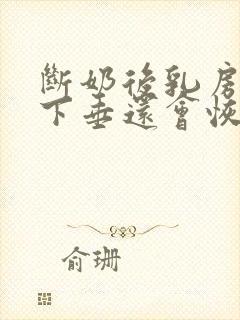 斷奶後乳房
下垂還會恢
俞珊